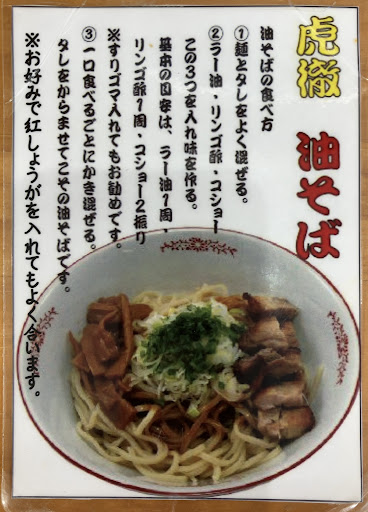 虎徹 油そば
油そばの食べ方
①麺とタレをよく混ぜる。
②ラー油・リンゴ酢・コショー
この3つを入れ味を作る。
基本の目安は、ラー油1周・
リンゴ酢1周・コショー2振り
※すりゴマ入れてもお勧めです。
③一口食べるごとにかき混ぜる。
タレをからませてこその油そばです。
※お好みで紅しょうがを入れてもよく合います。